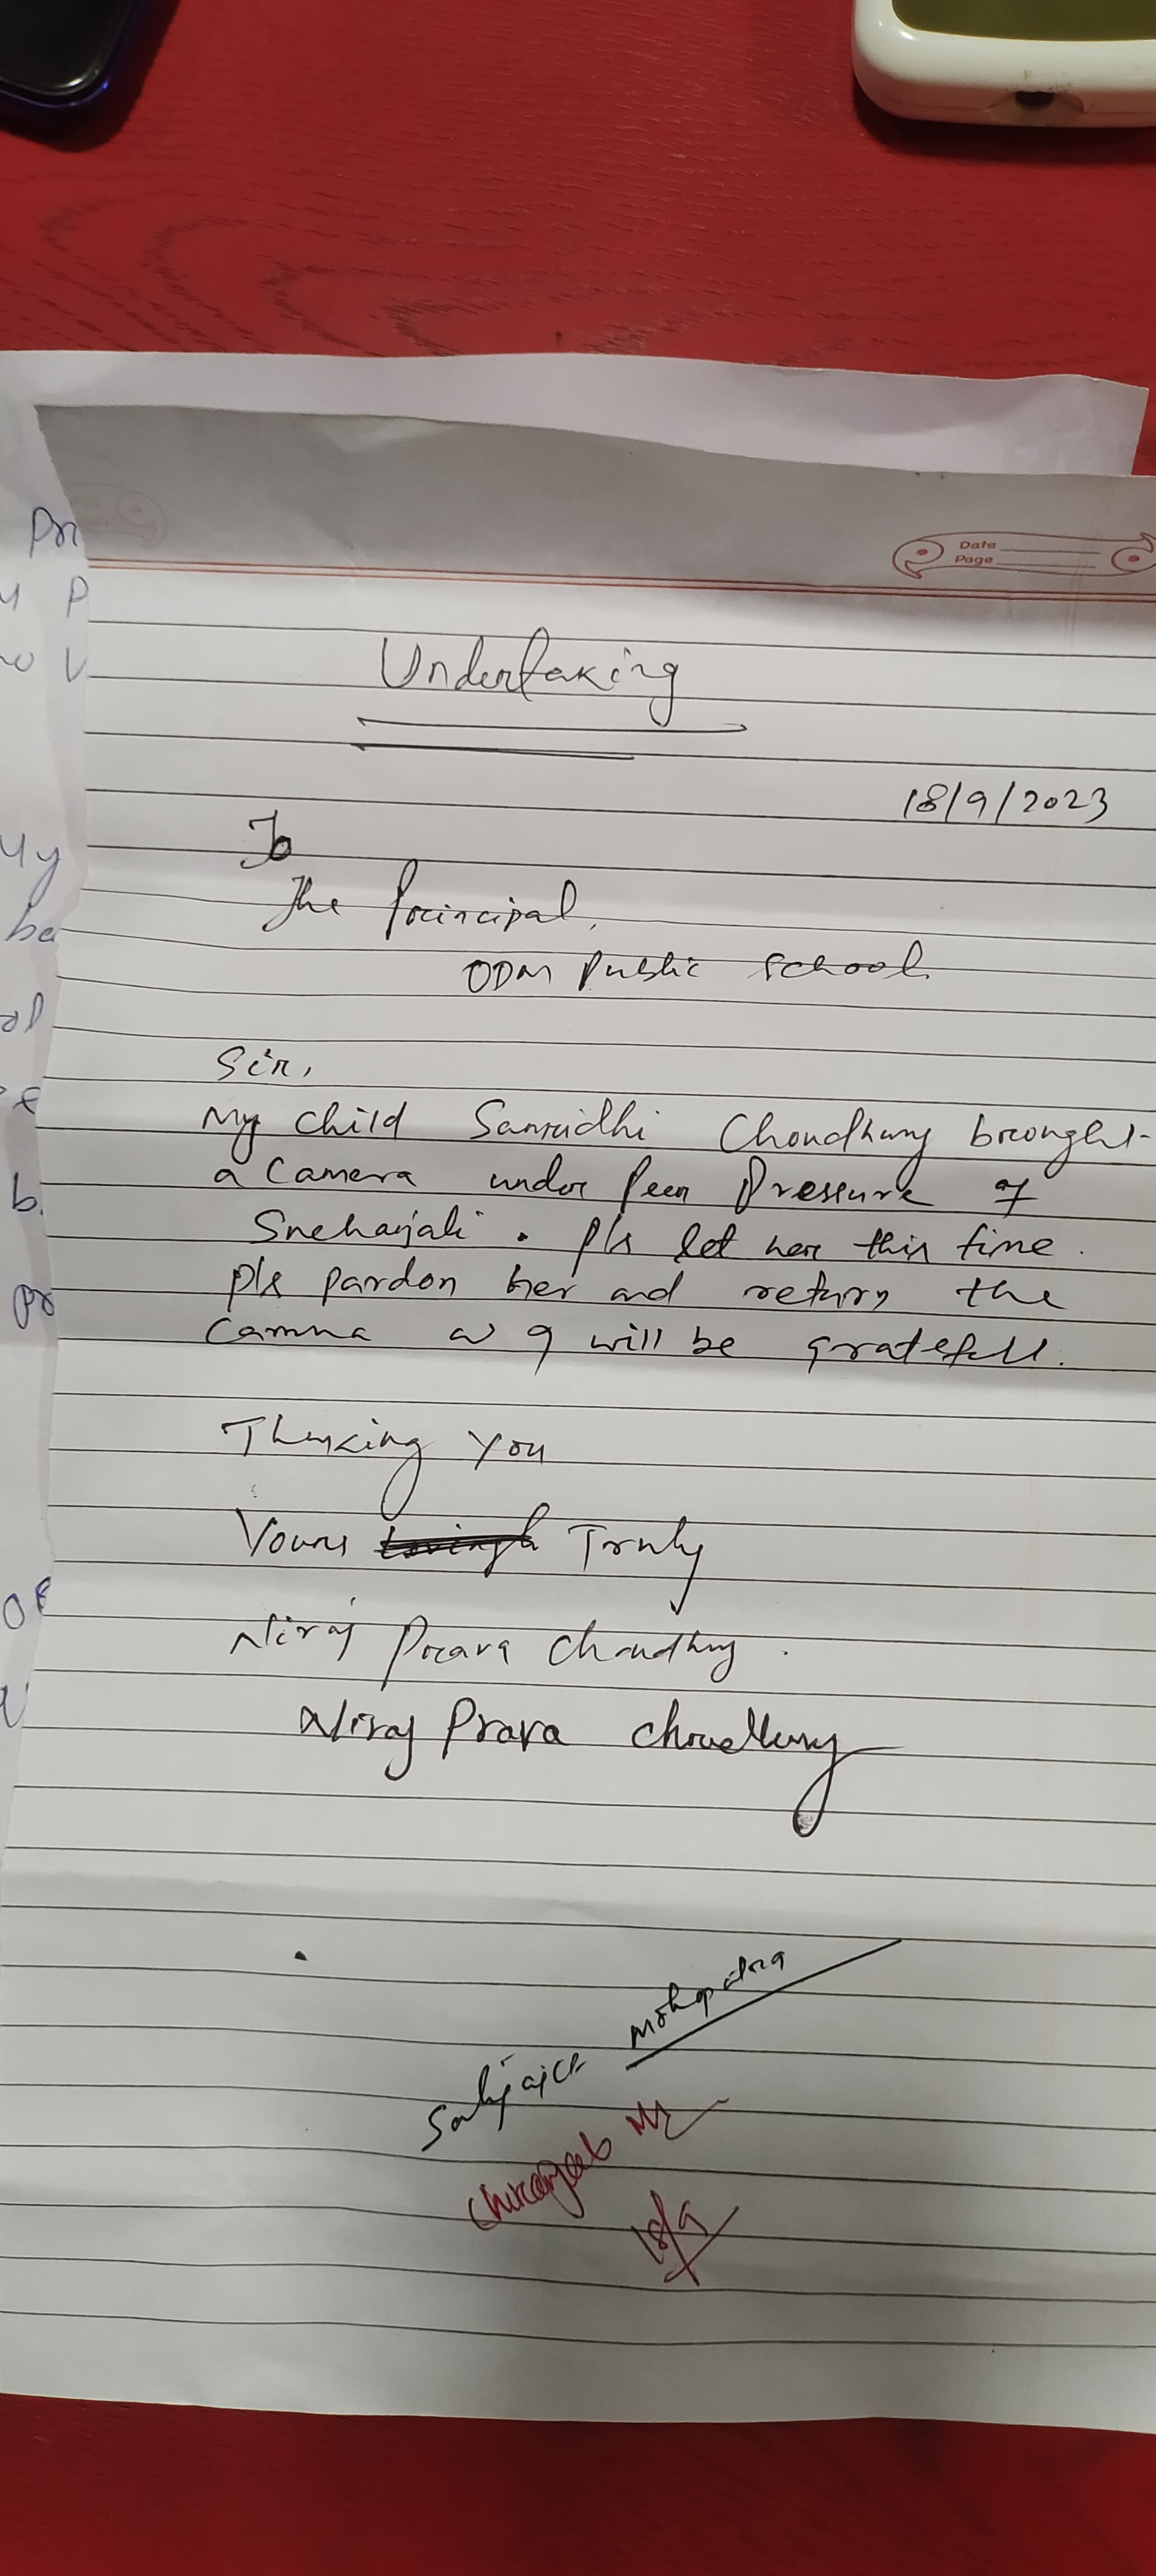 Date
Page
Undertaking
18/9/2023
To
The Principal,
ODM Public School
Sir,
My child Samridhi Choudhury brought
a camera under peer pressure of
Snehanjali. Pls let her this time.
pls pardon her and return the
camra will be gratefull.
Thanking You
Yours Truly
Niraj Prava Choudhury.
Niraj Prava Choudhury
Mohapatra
18/9